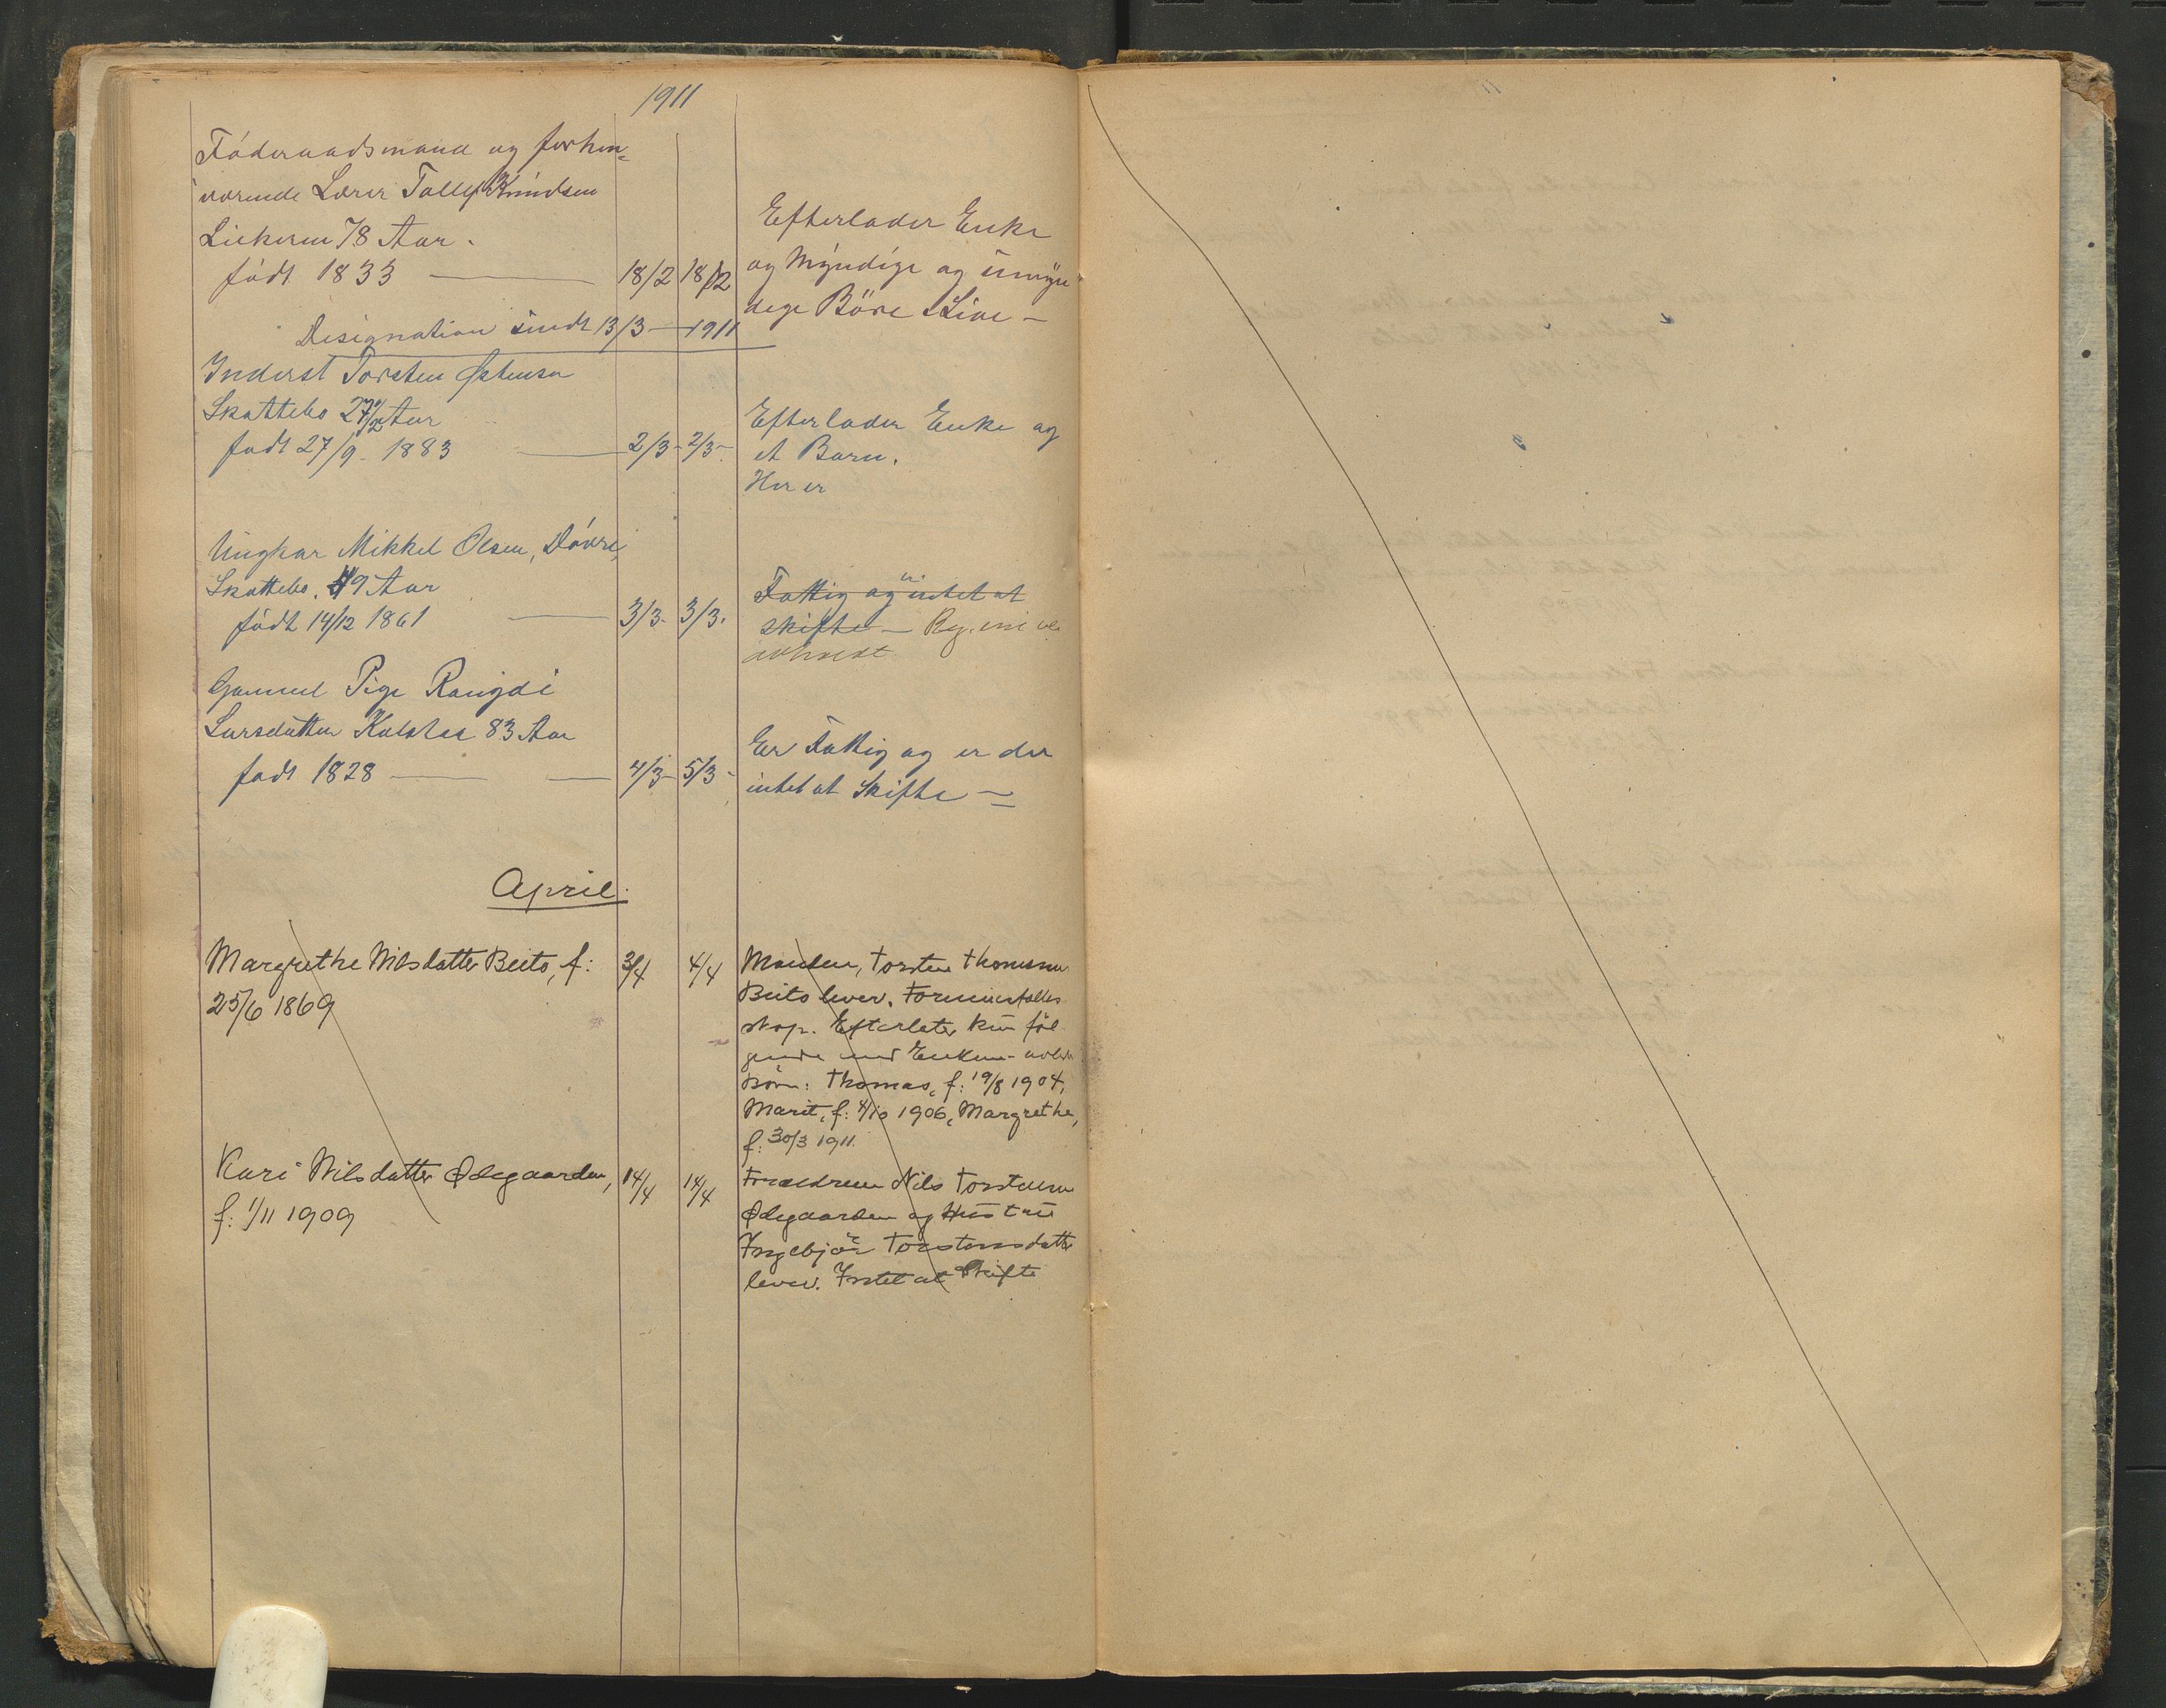 1911
Föderaadsmand og forhen-
værende Lærer Tollef Knudsen
78 Aar.
födt 1833 — 18/2 18/2
Efterlader Enke
og Myndige og umyn-
dige Börn i Live —
Designation sendt 13/3 — 1911
Inderst Torsten Østensen
Skattebo 27 1/2 Aar
født 27/9 - 1883 — 2/3 - 2/3 -
Efterlader Enke og
et Barn.
Her er
Ungkar Mikkel Olsen,
Skattebo. 49 Aar
födt 14/12 1861 — 3/3. 3/3.
Fattig og intet at
skifte —
Gammel Pige Rangdi
Larsdatter 83 Aar
født 1828 — 4/3 - 5/3 -
Er Fattig og er der
intet at Skifte —
April.
Margrethe Nilsdatter Beito, f: 3/4 4/4
25/6 1869
Manden, Torsten Thomessen
Beito lever. Formuesfælles-
skap. Efterlater kun föl-
gende med Enkem. avlede
Börn: Thomas, f: 19/8 1904,
Marit, f: 4/10 1906, Margrethe,
f: 30/3 1911.
Kari Nilsdatter Ødegaarden, 14/4 14/4
f: 1/11 1909
Forældrene Nils Torstensen
Ødegaarden og Hustru
Ingebjör Torstensdatter
lever. Intet at Skifte